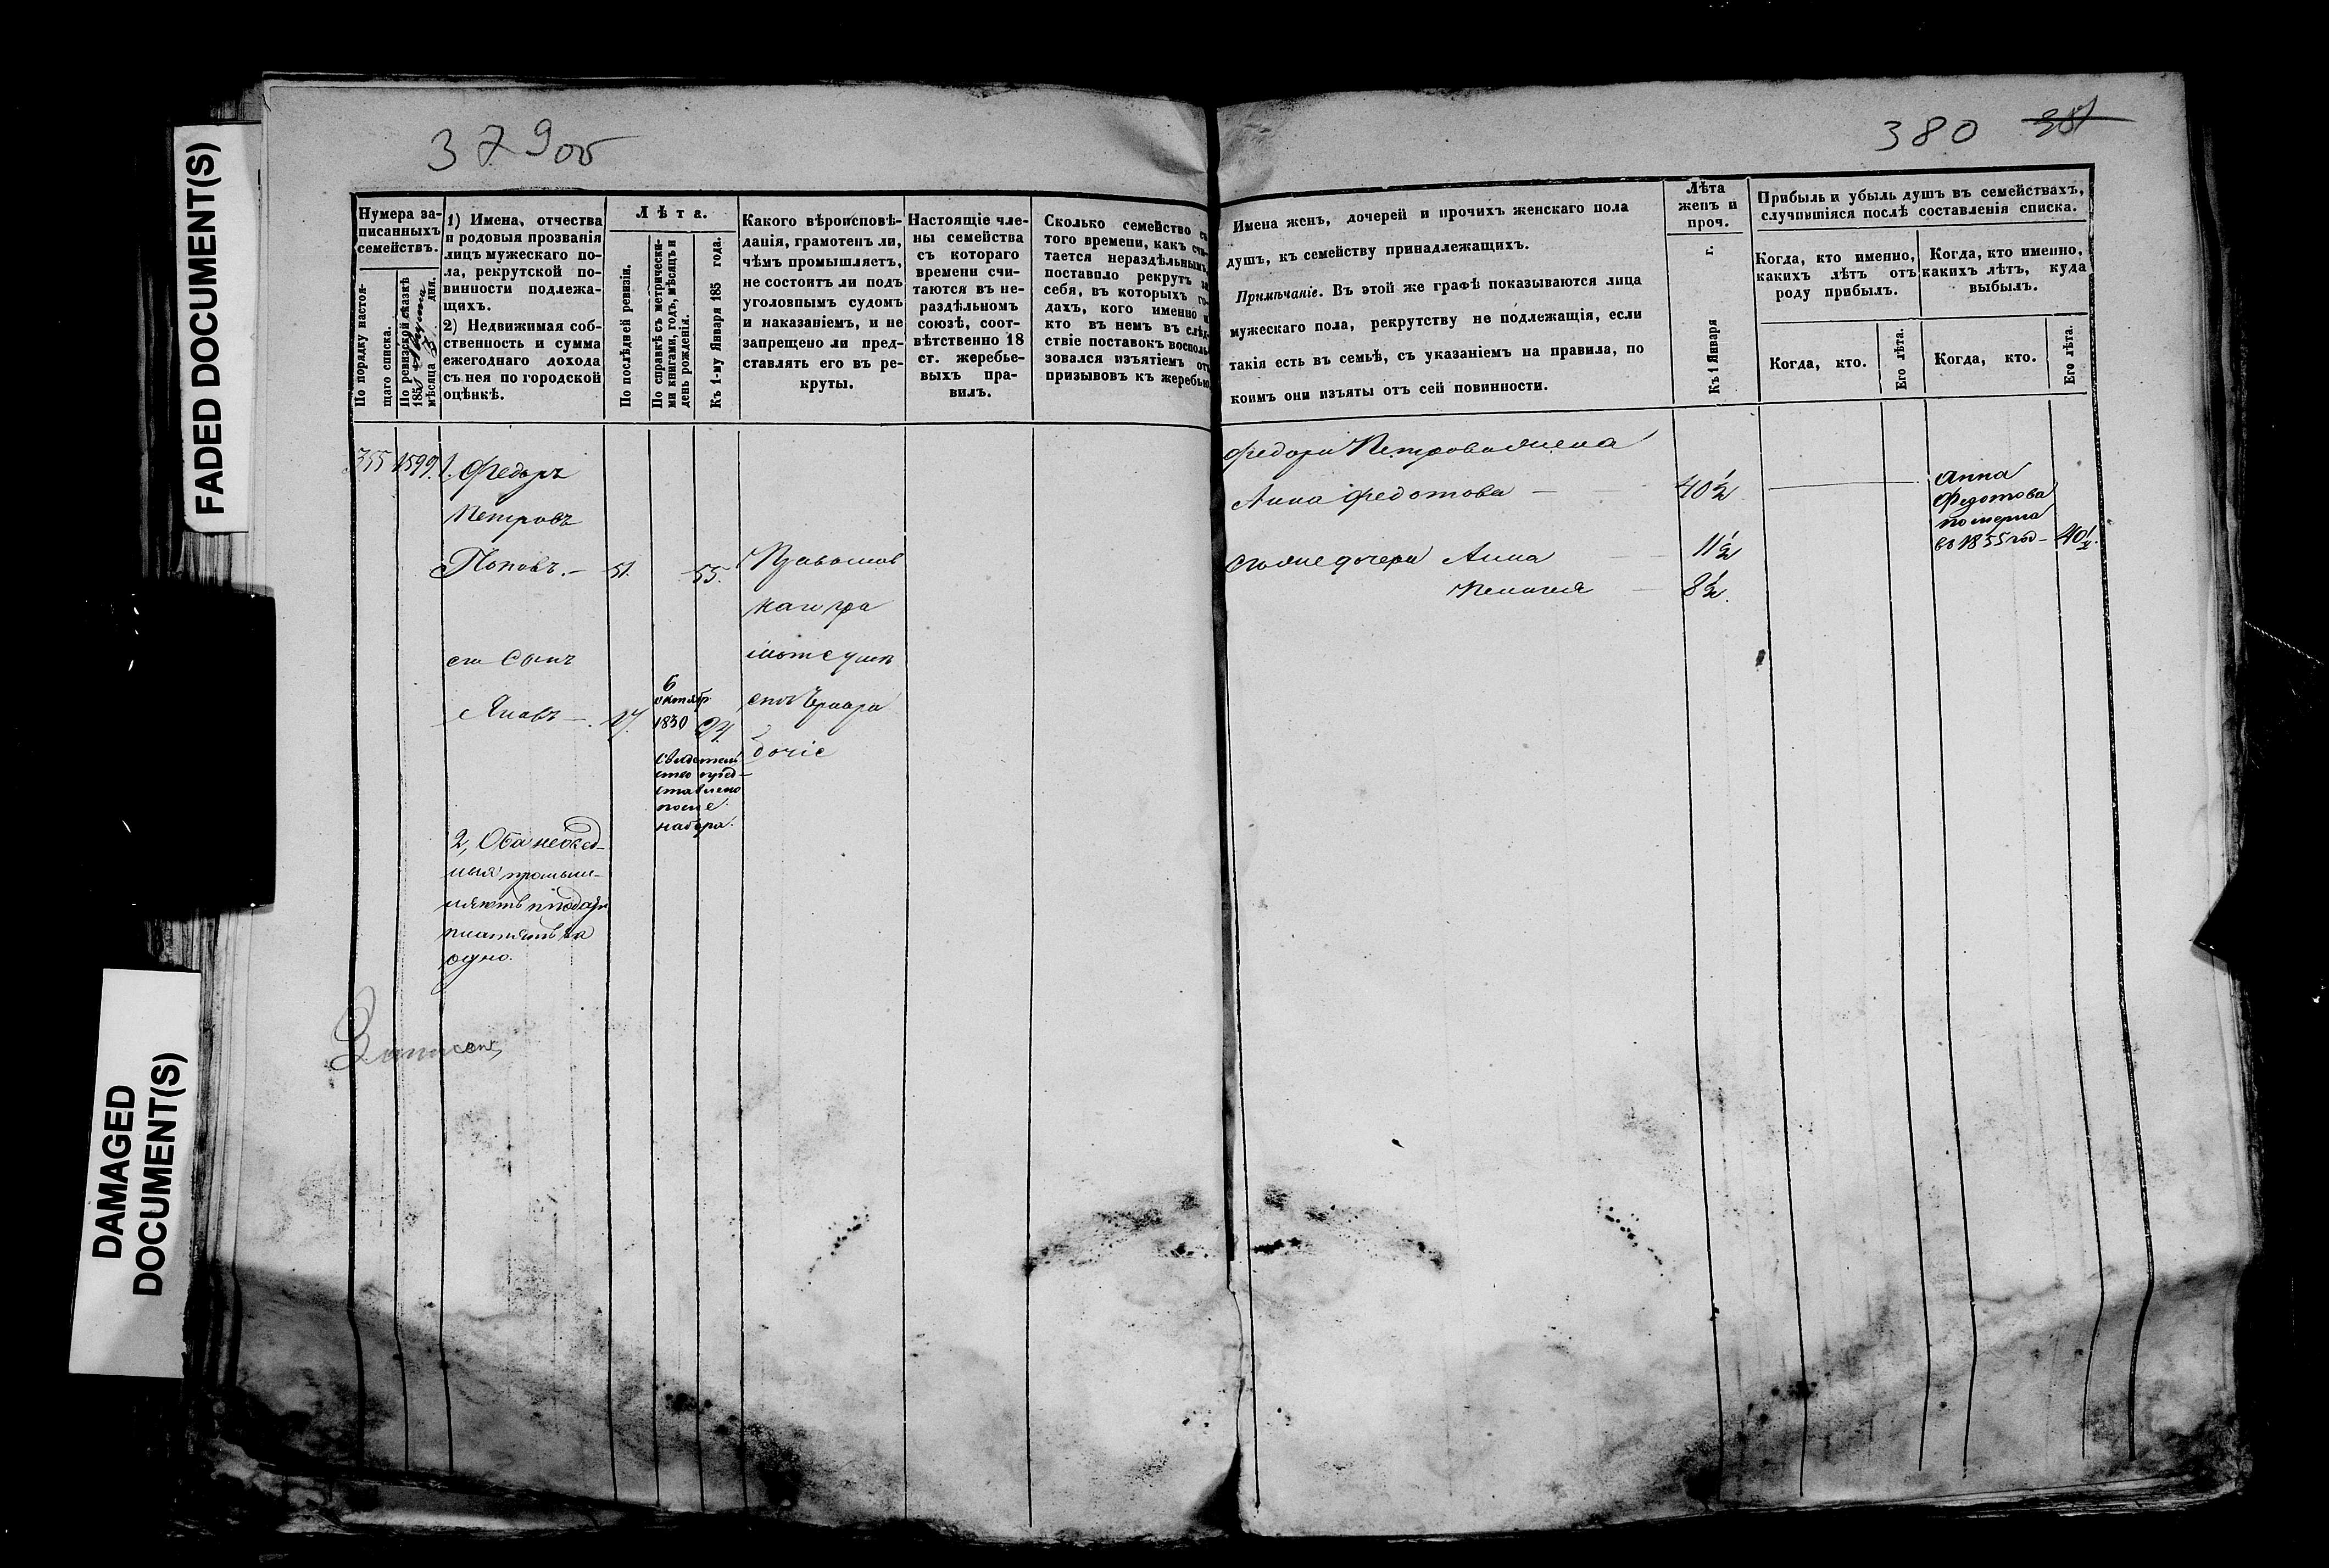 FADED DOCUMENT(S)
DAMAGED
DOCUMENT(S)
379 об
Нумера за-
писанныхъ
семействъ.
По порядку настоя-
щаго списка.
По ревизской сказкѣ
185 Августа
мѣсяца дня.
1) Имена, отчества
и родовыя прозванія
лицъ мужескаго по-
ла, рекрутской по-
винности подлежа-
щихъ.
2) Недвижимая соб-
ственность и сумма
ежегоднаго дохода
съ нея по городской
оцѣнкѣ.
Лѣта.
По послѣдней ревизіи.
По справкѣ съ метрически-
ми книгами, годъ, мѣсяцъ и
день рожденія.
Къ 1-му Января 185 года.
Какого вѣроисповѣ-
данія, грамотенъ ли,
чѣмъ промышляетъ,
не состоитъ ли подъ
уголовнымъ судомъ
и наказаніемъ, и не
запрещено ли пред-
ставлять его въ ре-
круты.
Настоящіе чле-
ны семейства
съ котораго
времени счи-
таются въ не-
раздѣльномъ
союзѣ, соот-
вѣтственно 18
ст. жеребье-
выхъ пра-
вилъ.
Сколько семейство съ
того времени, какъ счи-
тается нераздѣльнымъ,
поставило рекрутъ за
себя, въ которыхъ го-
дахъ, кого именно и
кто въ немъ въ слѣд-
ствіе поставокъ восполь-
зовался изъятіемъ отъ
призывовъ къ жеребью.
355 1599. 1. Федоръ
Петровъ
Поповъ. — 51. 55. Православ
на и гра
его Сынъ
Яковъ — 17. 6
октябр
1830 24.
бочіе
свидетель
ство пред-
ставлено
после
набора.
2, Оба нераздѣ-
промы-
шляютъ и подати
платятъ за
одно.
Записанъ
380 381
Имена женъ, дочерей и прочихъ женскаго пола
душъ, къ семейству принадлежащихъ.
Примѣчаніе. Въ этой же графѣ показываются лица
мужескаго пола, рекрутству не подлежащія, если
такія есть въ семьѣ, съ указаніемъ на правила, по
коимъ они изъяты отъ сей повинности.
Лѣта
женъ и
проч.
Къ 1 Января г.
Прибыль и убыль душъ въ семействахъ,
случившіяся послѣ составленія списка.
Когда, кто именно,
какихъ лѣтъ отъ
роду прибылъ.
Когда, кто именно,
какихъ лѣтъ, куда
выбылъ.
Когда, кто.
Его лѣта.
Когда, кто.
Его лѣта.
Федора Петрова жена
Анна Федотова — 40½
Анна
Федотова
померла
въ 1855 год — 40½.
его же дочери Анна — 11½
Пелагея — 8½.